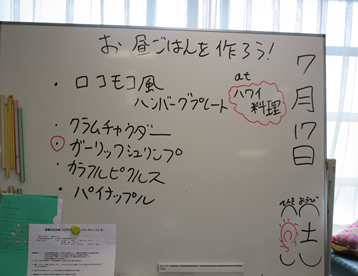 お昼ごはんを作ろう!
・ロコモコ風
ハンバーグプレート
at
ハワイ
料理
・クラムチャウダー
・ガーリックシュリンプ
・カラフルピクルス
・パイナップル
7月17日
ようび
土